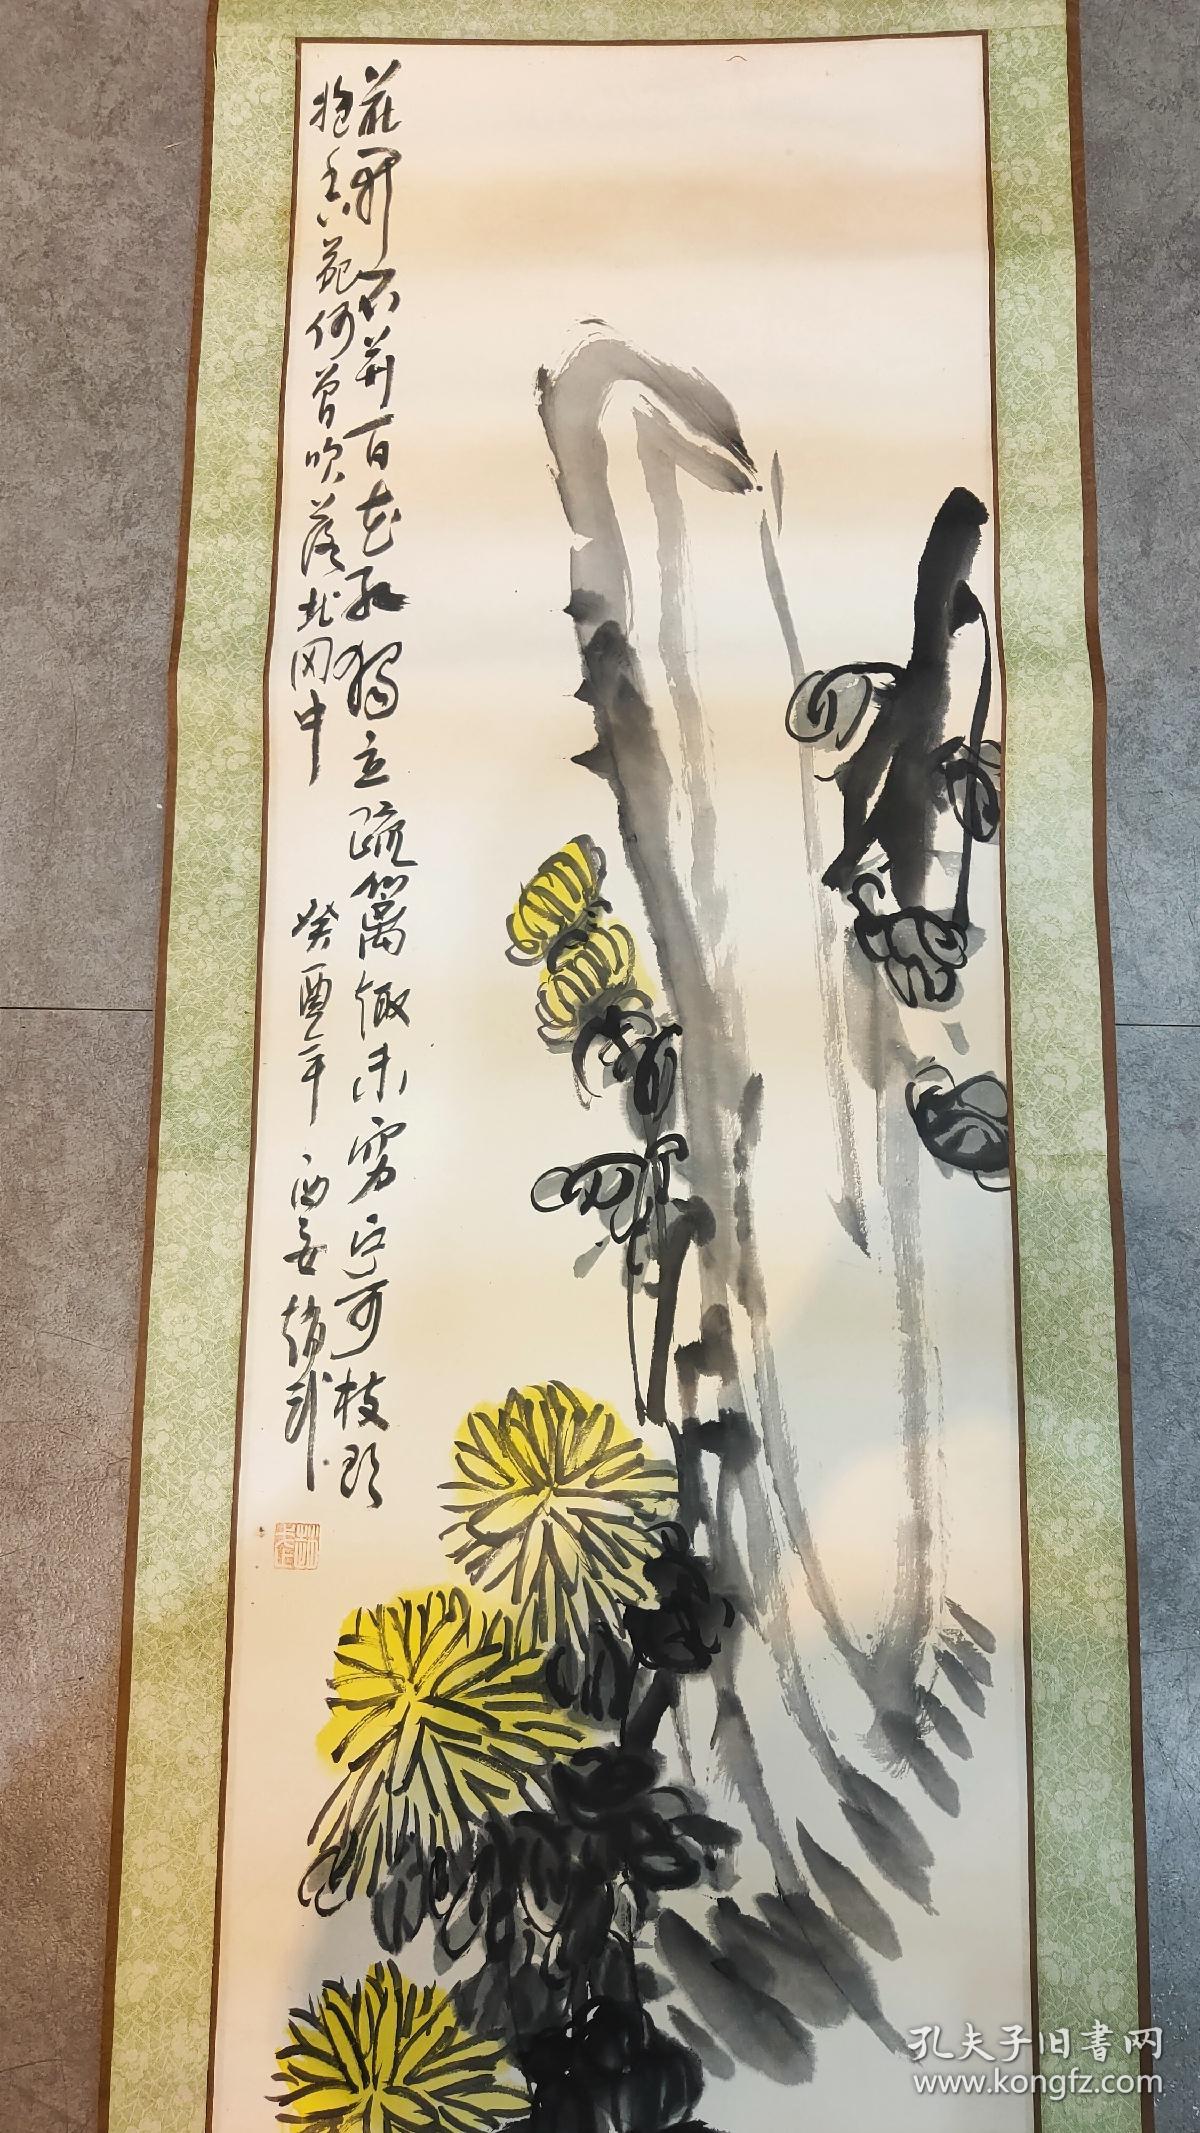 花開不并百花丛獨立疏篱趣未窮寧可枝頭
抱香死何曾吹落北风中 癸酉年 西安 趙武
孔夫子旧書网
www.kongfz.com